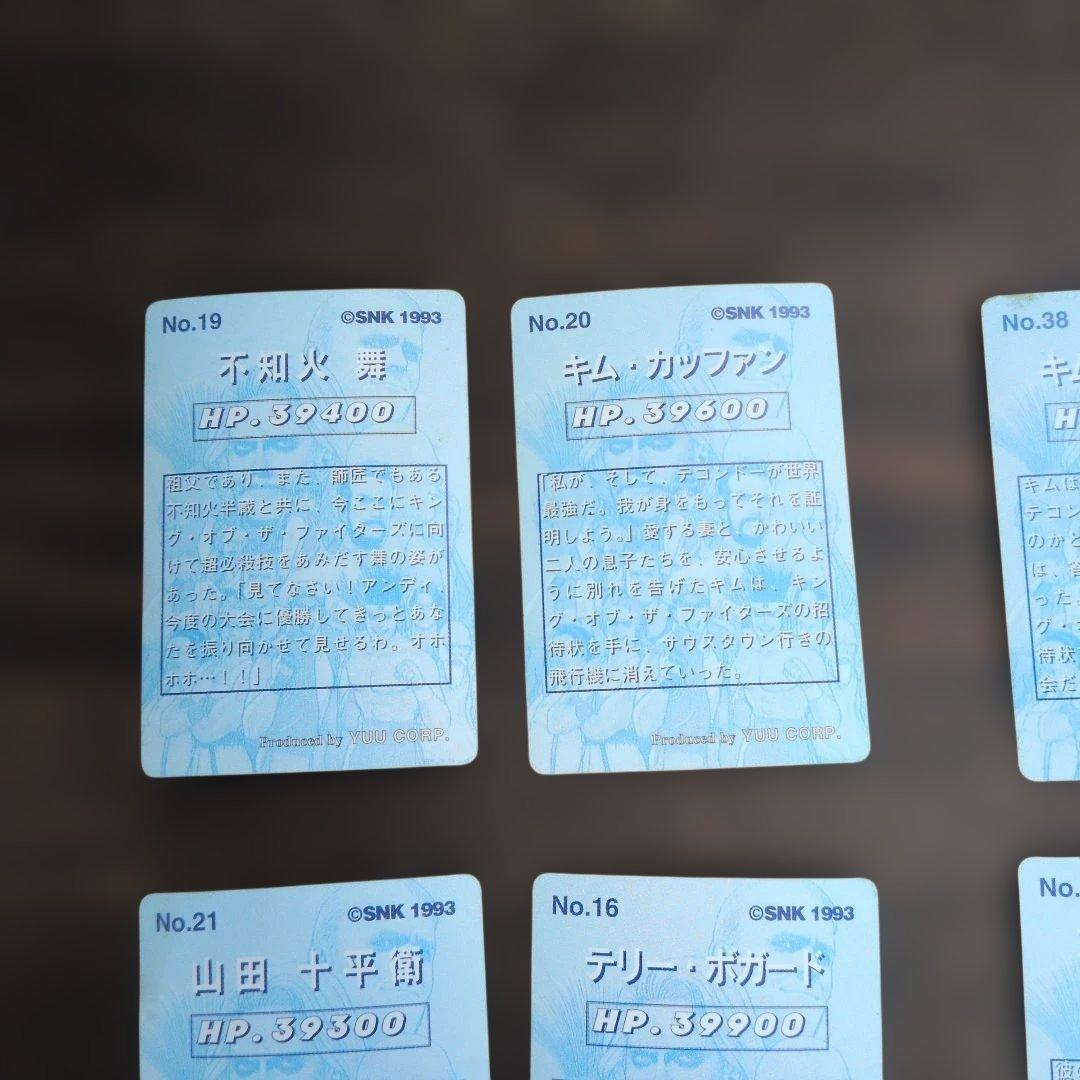 No.19 ©SNK 1993
不知火 舞
HP.39400
祖父であり、また、師匠でもある
不知火半蔵と共に、今ここにキン
グ・オブ・ザ・ファイターズに向
けて超必殺技をあみだす舞の姿が
あった。「見てなさい!アンディ、
今度の大会に優勝してきっとあな
たを振り向かせて見せるわ。オホ
ホホ…!!」
Produced by YUU CORP.
No.20 ©SNK 1993
キム・カッファン
HP.39600
「私が、そして、テコンドーが世界
最強だ。我が身をもってそれを証
明しよう。」愛する妻と、かわいい
二人の息子たちを、安心させるよ
うに別れを告げたキムは、キン
グ・オブ・ザ・ファイターズの招
待状を手に、サウスタウン行きの
飛行機に消えていった。
Produced by YUU CORP.
No.38
キム
H
キムは
テコン
のかと
は、
った。
グ・
待状
会だ
No.21 ©SNK 1993
山田 十平衛
HP.39300
No.16 ©SNK 1993
テリー・ボガード
HP.39900
No.